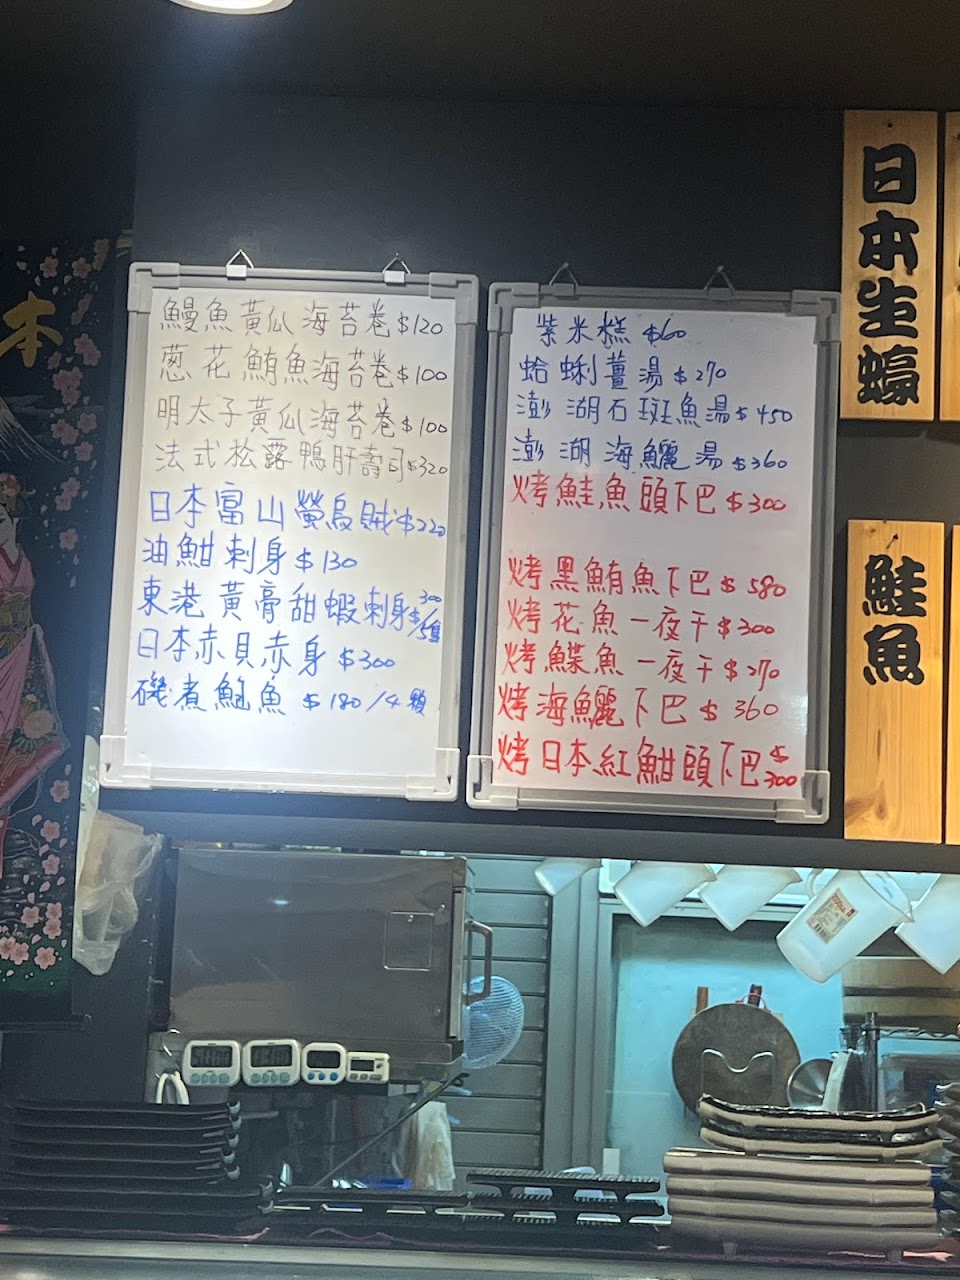 鰻魚黃瓜海苔卷$120
蔥花鮪魚海苔卷$100
明太子黃瓜海苔卷$100
法式松露鴨肝壽司$320
日本富山螢烏賊$220
油魽刺身$130
東港黃膏甜蝦刺身$300/5隻
日本赤貝赤身$300
磯煮鮑魚$180/4顆
紫米糕$60
蛤蜊薑湯$270
澎湖石斑魚湯$450
澎湖海鱺湯$360
烤鮭魚頭下巴$300
烤黑鮪魚下巴$580
烤花魚一夜干$300
烤鰈魚一夜干$270
烤海鱺下巴$360
烤日本紅魽頭下巴$300
日本生蠔
鮭魚
本